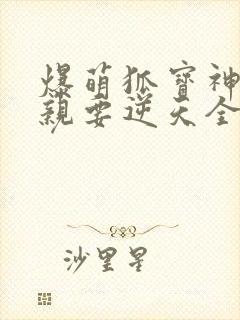 爆萌狐寶神
親要逆天全
沙里星